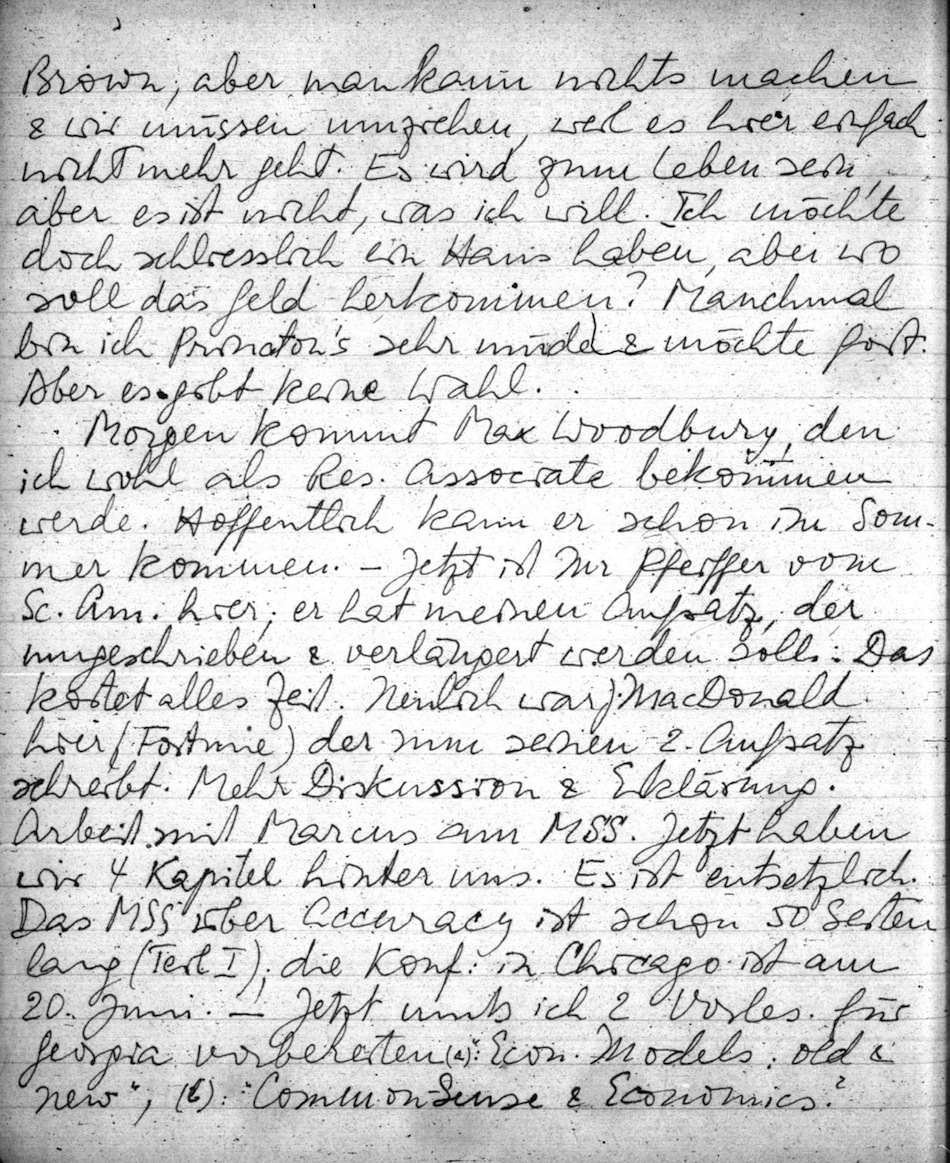 Brown, aber man kann nichts machen
& wir müssen umziehen, weil es hier einfach
nicht mehr geht. Es wird zum Leben sein,
aber es ist nicht, was ich will. Ich möchte
doch schliesslich ein Haus haben, aber wo
soll das Geld herkommen? Manchmal
bin ich Princeton's sehr müde & möchte fort.
Aber es gibt keine Wahl.
Morgen kommt Max Woodbury, den
ich wohl als Res. Associate bekommen
werde. Hoffentlich kann er schon im Som-
mer kommen. – Jetzt ist Mr Pfeiffer vom
Sc. Am. hier; er hat meinen Aufsatz, der
umgeschrieben & verlängert werden soll. Das
kostet alles Zeit. Neulich war J. MacDonald
hier (Fortune) der nun seinen 2. Aufsatz
schreibt. Mehr Diskussion & Erklärung.
Arbeit mit Marcus am MSS. Jetzt haben
wir 4 Kapitel hinter uns. Es ist entsetzlich.
Das MSS über Accuracy ist schon 50 Seiten
lang (Teil I); die Konf. in Chicago ist am
20. Juni. – Jetzt muß ich 2 Vorles. für
Georgia vorbereiten (a): "Econ. Models: old &
new", (b): "Common Sense & Economics."